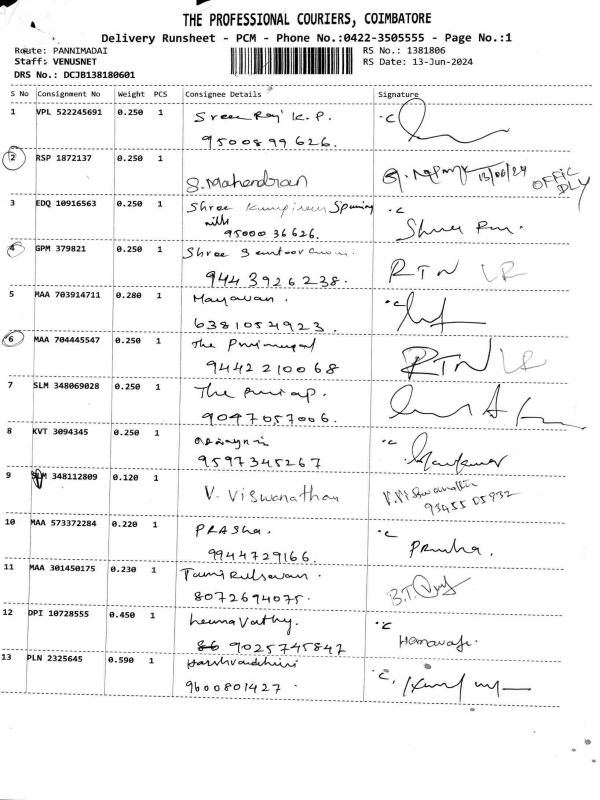 THE PROFESSIONAL COURIERS, COIMBATORE
Delivery Runsheet - PCM - Phone No.:0422-3505555 - Page No.:1
Route: PANNIMADAI
RS No.: 1381806
Staff: VENUSNET
RS Date: 13-Jun-2024
DRS No.: DCJB138180601
S No Consignment No Weight PCS Consignee Details Signature
1 VPL 522245691 0.250 1 Sree Raj K.P.
9500899626.
2 RSP 1872137 0.250 1
S. Mahendran 13/06/24 OFFIC
DLY
3 EDQ 10916563 0.250 1 Shree Spinning
mills
9500036626.
4 GPM 379821 0.250 1 Shree
9443926238. RTN LR
5 MAA 703914711 0.280 1 Mayavan.
6381054923.
6 MAA 704445547 0.250 1 The
9442210068 RTN LR
7 SLM 348069028 0.250 1 The
9047057006.
8 KVT 3094345 0.250 1
9597345267
9 SLM 348112809 0.120 1
V. Viswanathan V. Viswanathan
9345505932
10 MAA 573372284 0.220 1 PRASha.
9944729166.
11 MAA 301450175 0.230 1 Tamil Selvan.
8072694075. B.T.
12 DPI 10728555 0.450 1
86 9025745847
13 PLN 2325645 0.590 1 Harshvardhini
9600801427